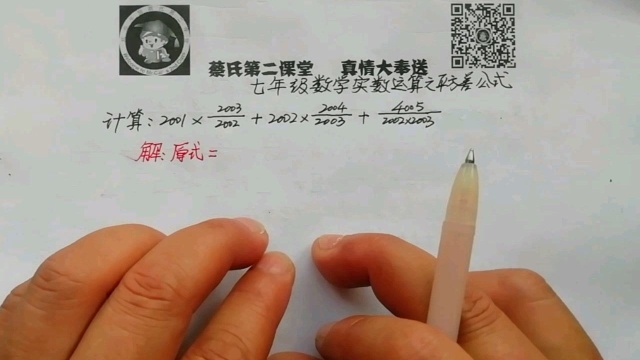 蔡氏第二课堂 真情大奉送
七年级数学实数运算之平方差公式
计算:2001×2003/2002+2002×2004/2003+4005/2002×2003
解:原式=